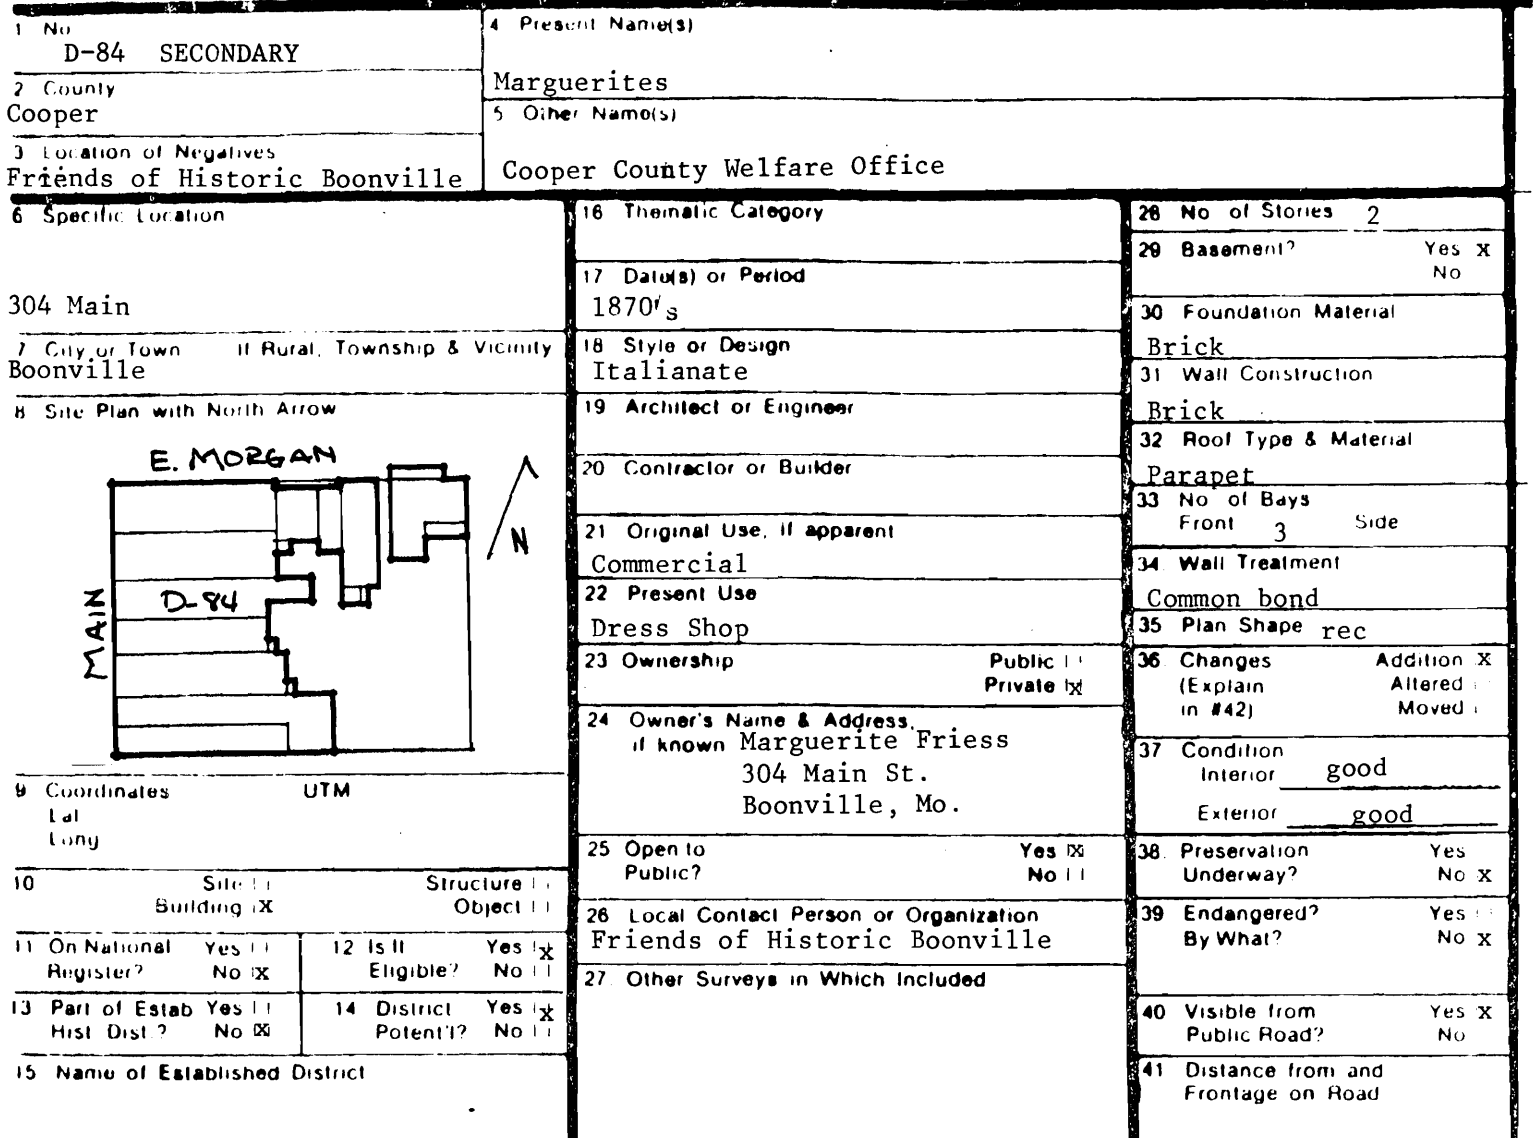 1 No
D-84 SECONDARY
2 County
Cooper
3 Location of Negatives
Friends of Historic Boonville
4 Present Name(s)
Marguerites
5 Other Name(s)
Cooper County Welfare Office
6 Specific Location
304 Main
7 City or Town If Rural, Township & Vicinity
Boonville
8 Site Plan with North Arrow
E. MORGAN
N
MAIN
D-84
9 Coordinates UTM
Lat
Long
10 Site Structure
Building X Object
11 On National Yes
Register? No X
12 Is It Yes X
Eligible? No
13 Part of Estab Yes
Hist Dist.? No X
14 District Yes X
Potent'l? No
15 Name of Established District
16 Thematic Category
17 Date(s) or Period
1870's
18 Style or Design
Italianate
19 Architect or Engineer
20 Contractor or Builder
21 Original Use, if apparent
Commercial
22 Present Use
Dress Shop
23 Ownership Public
Private X
24 Owner's Name & Address,
if known Marguerite Friess
304 Main St.
Boonville, Mo.
25 Open to Yes X
Public? No
26 Local Contact Person or Organization
Friends of Historic Boonville
27. Other Surveys in Which Included
28 No of Stories 2
29 Basement? Yes X
No
30 Foundation Material
Brick
31 Wall Construction
Brick
32 Roof Type & Material
Parapet
33 No of Bays
Front 3 Side
34 Wall Treatment
Common bond
35 Plan Shape rec
36 Changes Addition X
(Explain Altered
in #42) Moved
37 Condition
Interior good
Exterior good
38. Preservation Yes
Underway? No X
39 Endangered? Yes
By What? No X
40 Visible from Yes X
Public Road? No
41 Distance from and
Frontage on Road